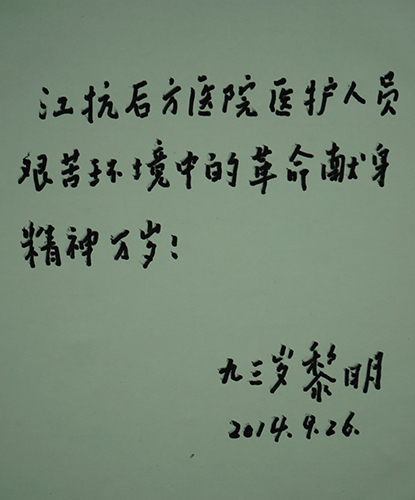 江抗后方医院医护人员
艰苦环境中的革命献身
精神万岁！
九三岁黎明
2014.9.26.